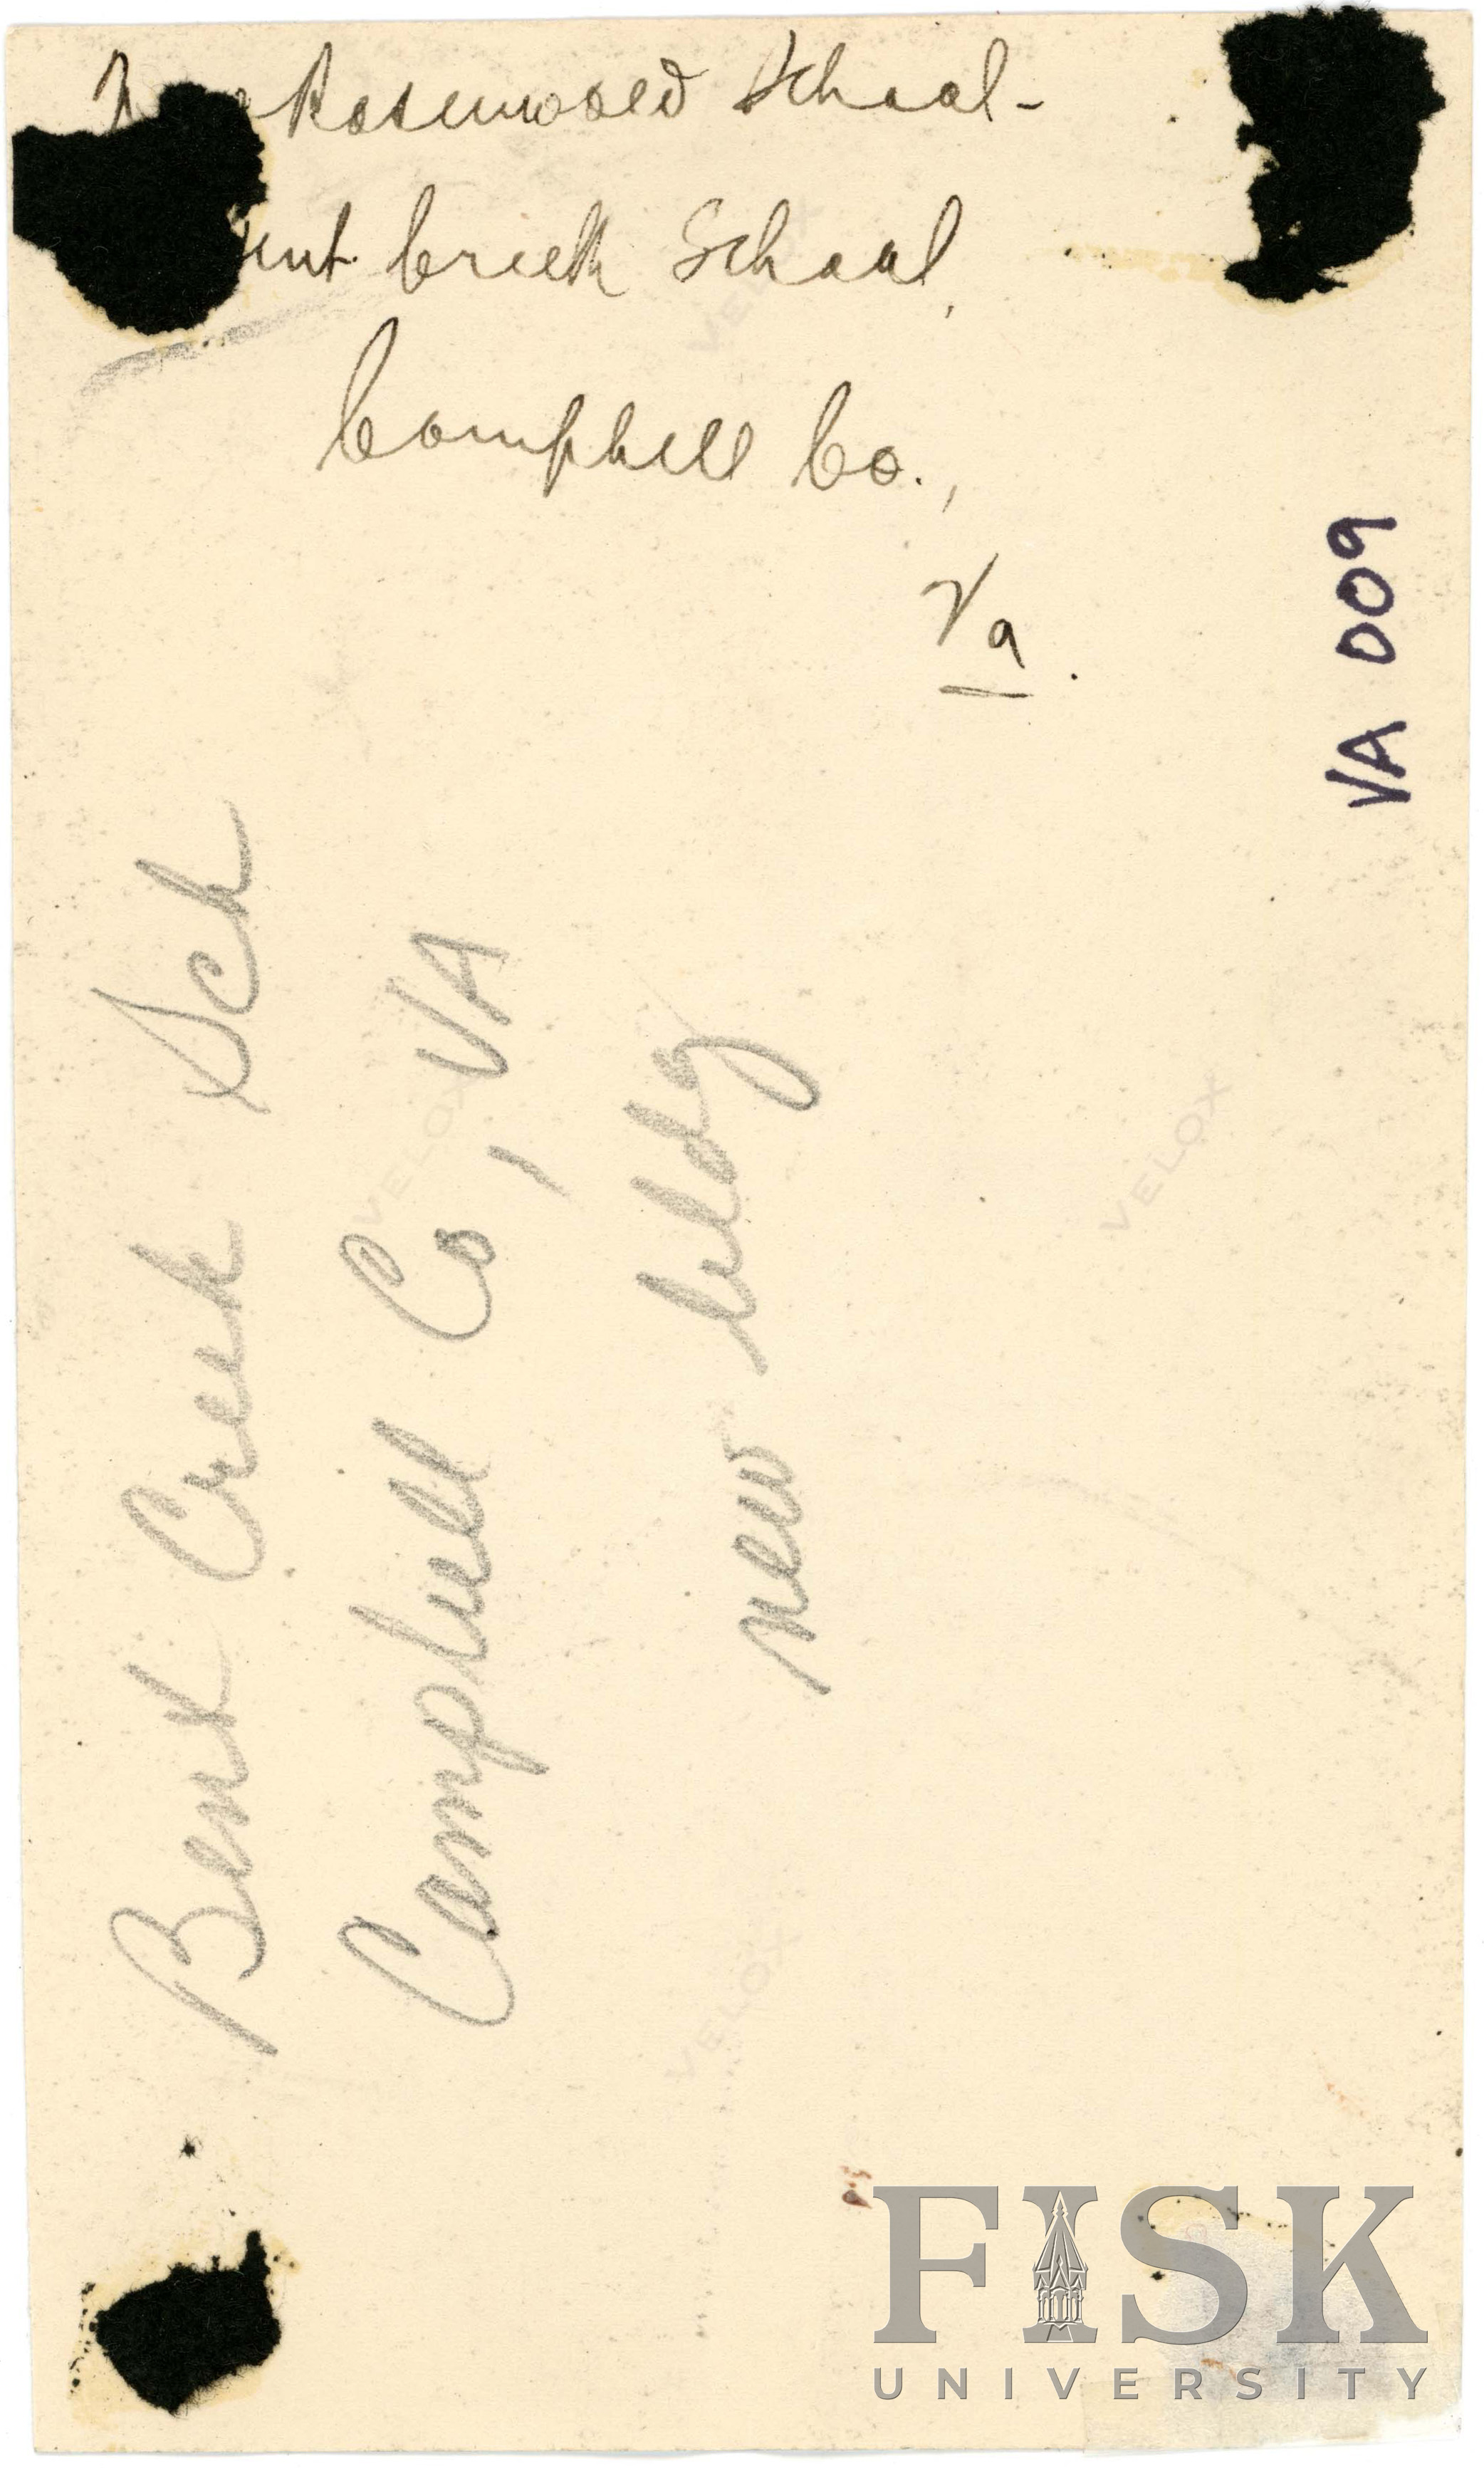 Rosenwald School-
Bent Creek School,
Campbell Co.,
Va.
VA 009
Bent Creek Sch
Campbell Co, VA
new bldg
VELOX
VELOX
VELOX
VELOX
FISK
UNIVERSITY